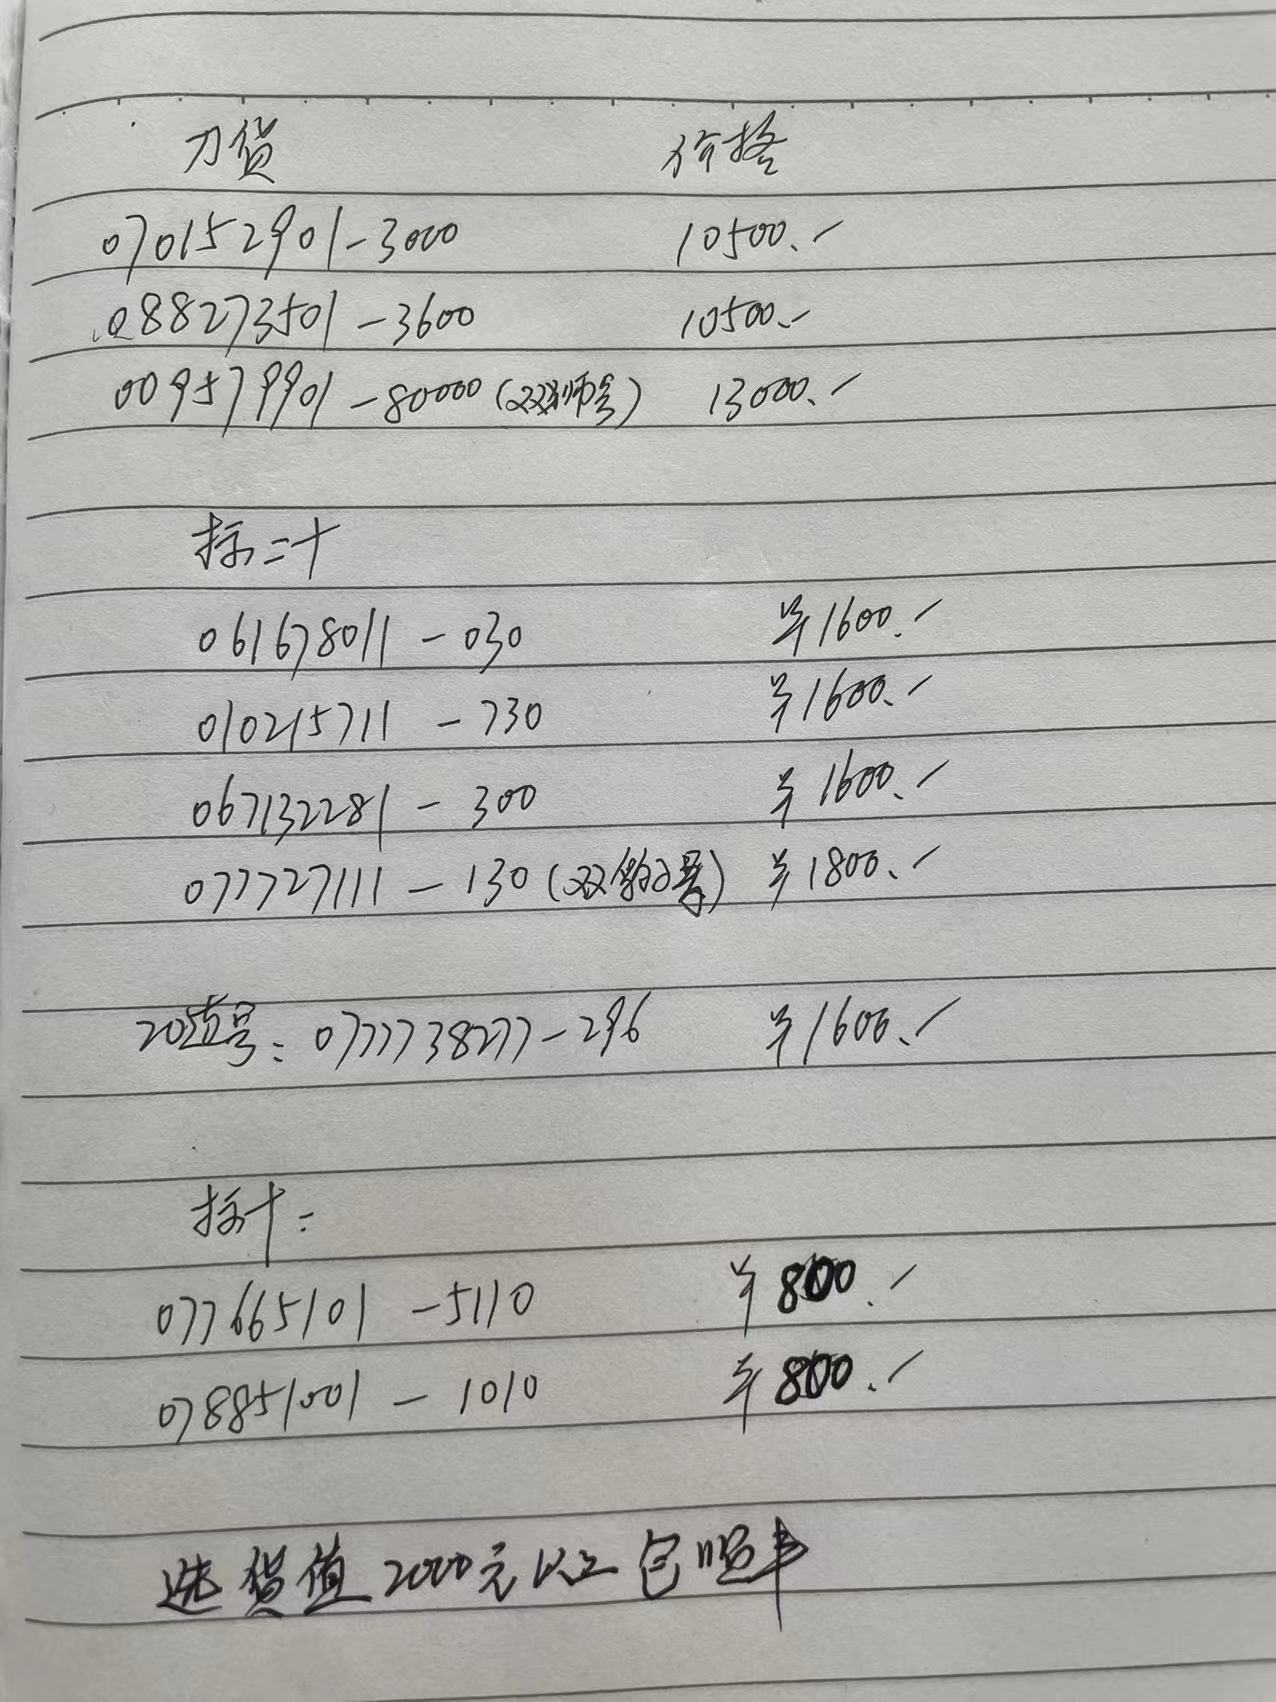 刀货 价格
070152901-3000 10500.-
088273501-3600 10500.-
009579901-80000(双狮号) 13000.-
标二十
061678011-030 ¥1600.-
010215711-730 ¥1600.-
067132281-300 ¥1600.-
077727111-130(双豹子号) ¥1800.-
20连号:0777738277-296 ¥1600.-
标十:
077665101-5110 ¥800.-
078851001-1010 ¥800.-
选货值2000元以上包顺丰